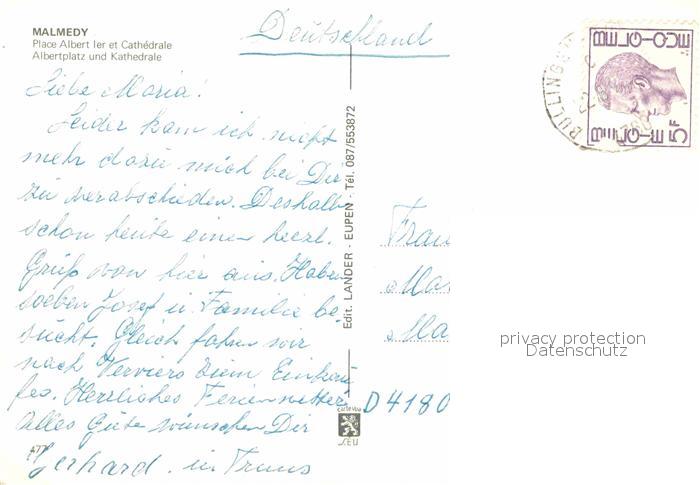 MALMEDY
Place Albert Ier et Cathédrale
Albertplatz und Kathedrale
Deutschland
Liebe Maria!
Leider kam ich nicht
mehr dazu mich bei Dir
zu verabschieden. Deshalb
schon heute einen herzl.
Gruß von hier aus. Haben
soeben Josef u. Familie be-
sucht. Gleich fahren wir
nach Verviers zum Einkau
fen. Herzliches Ferienwetter
Alles Gute wünschen Dir
Gerhard
477
Edit. LANDER - EUPEN - Tél. 087/553872
carte vue
SEU
BELGIQUE
BELGIE 5F
BULLINGEN
Frau
Ma
Ma
D 4180
privacy protection
Datenschutz